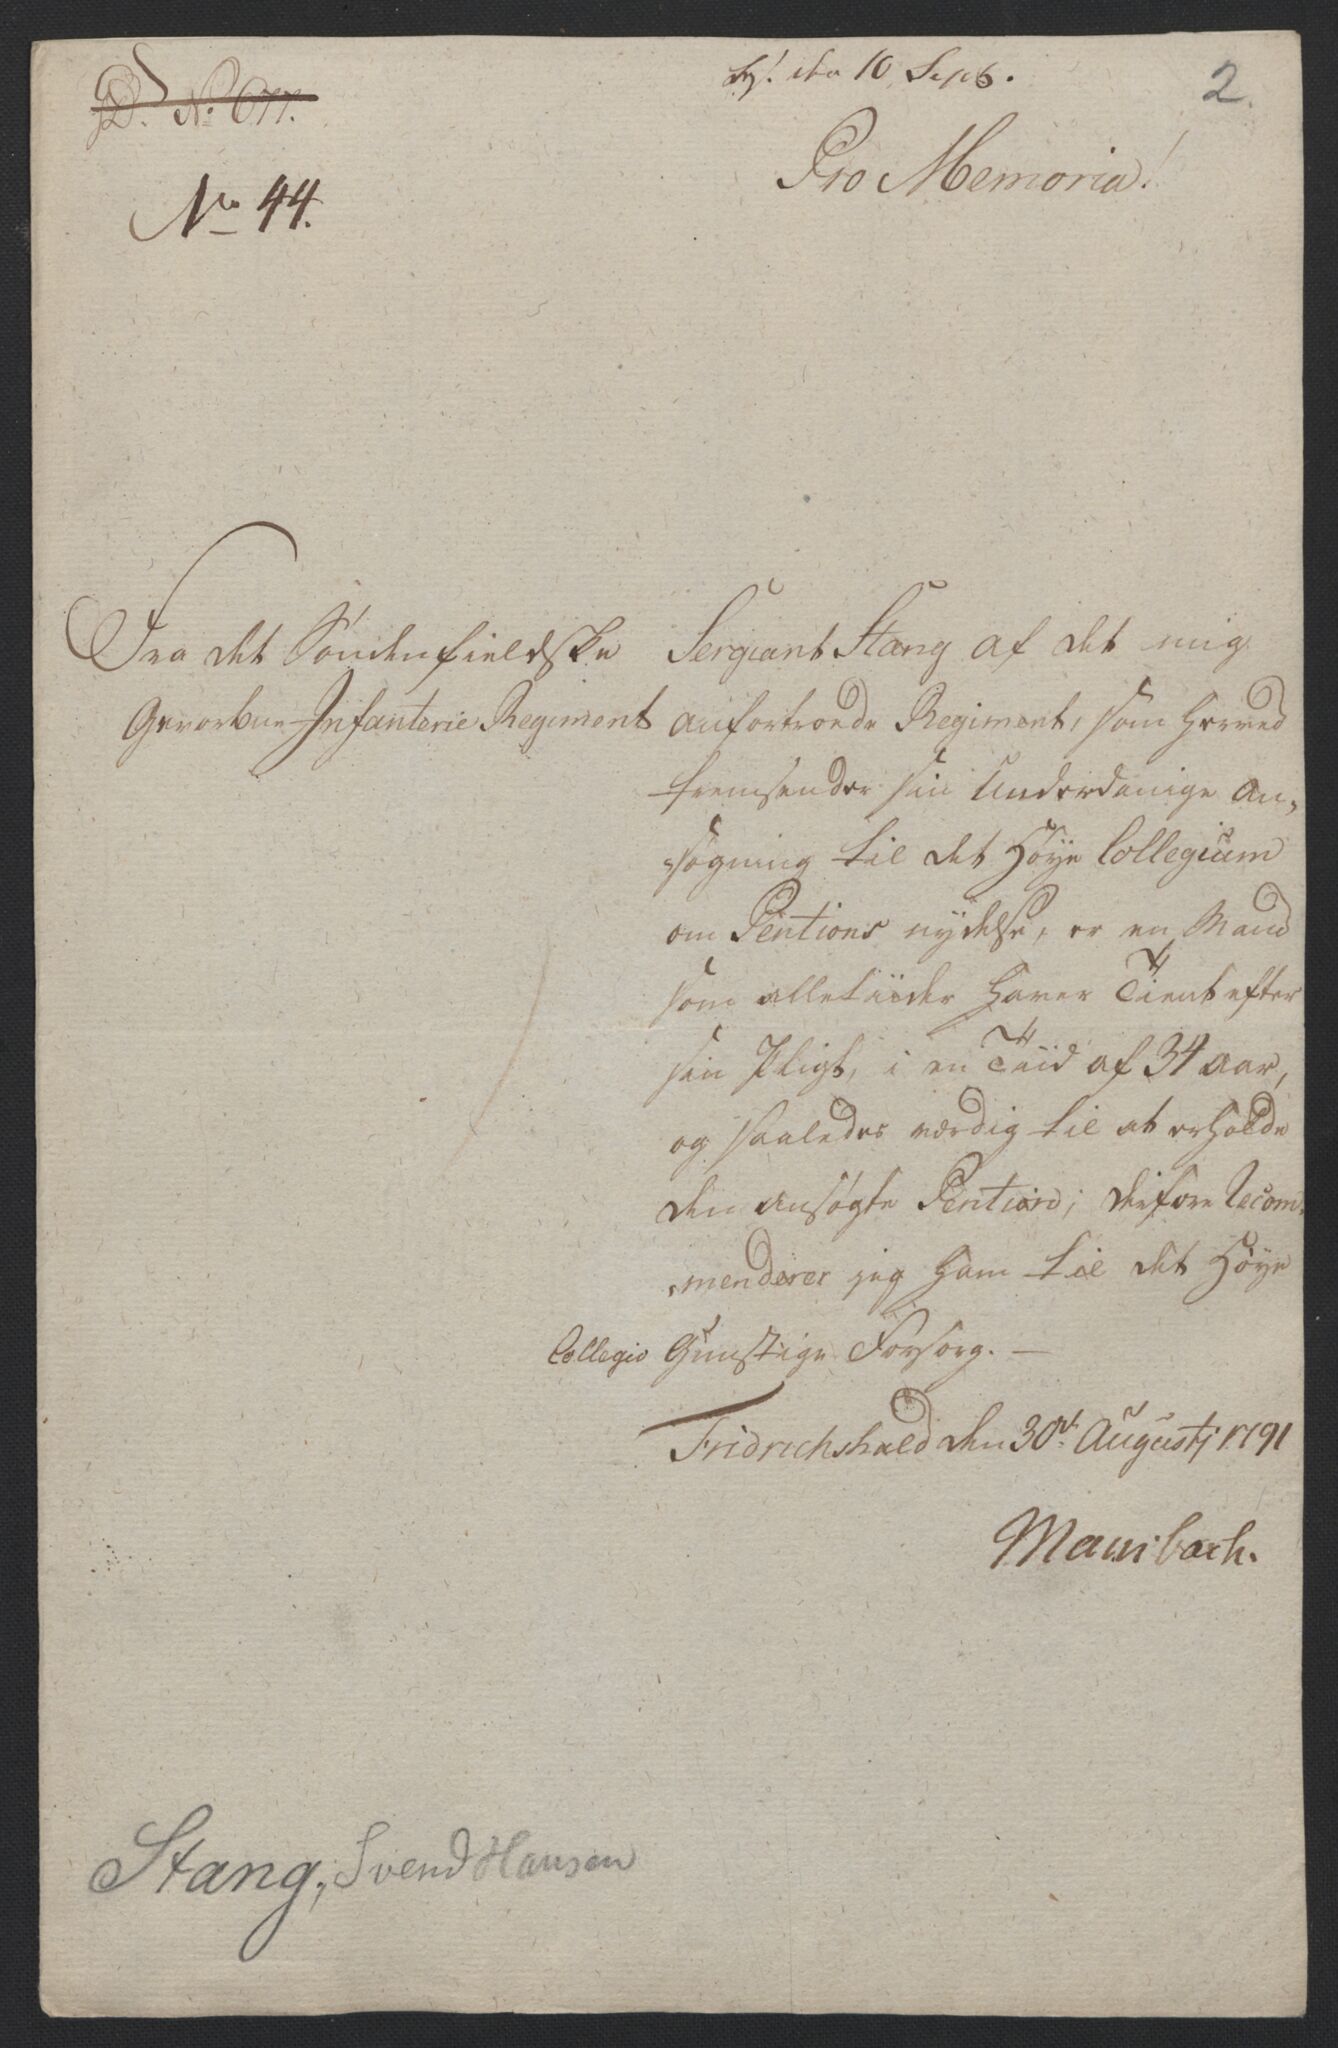 GD. No 677.
No 44.
d. 10 Septb.
2.
Pro Memoria!
Fra det Søndenfieldske
Gevorbne Infanterie Regiment
Sergiant Stang af det mig
anfortroede Regiment, som herved
fremsender sin Underdanige An„
„søgning til det Høye Collegium
om Pentions nydelse, er en Mand
som alletiider haver Tient efter
sin Pligt, i en Tiid af 34 aar,
og saaledes værdig til at erholde
den ansøgte Pention; derfore Recom„
„menderer jeg ham til det Høye
Collegio Gunstige Forsorg. —
Fridrichshald den 30te Augustj 1791
Mansbach.
Stang, Svend Hansen